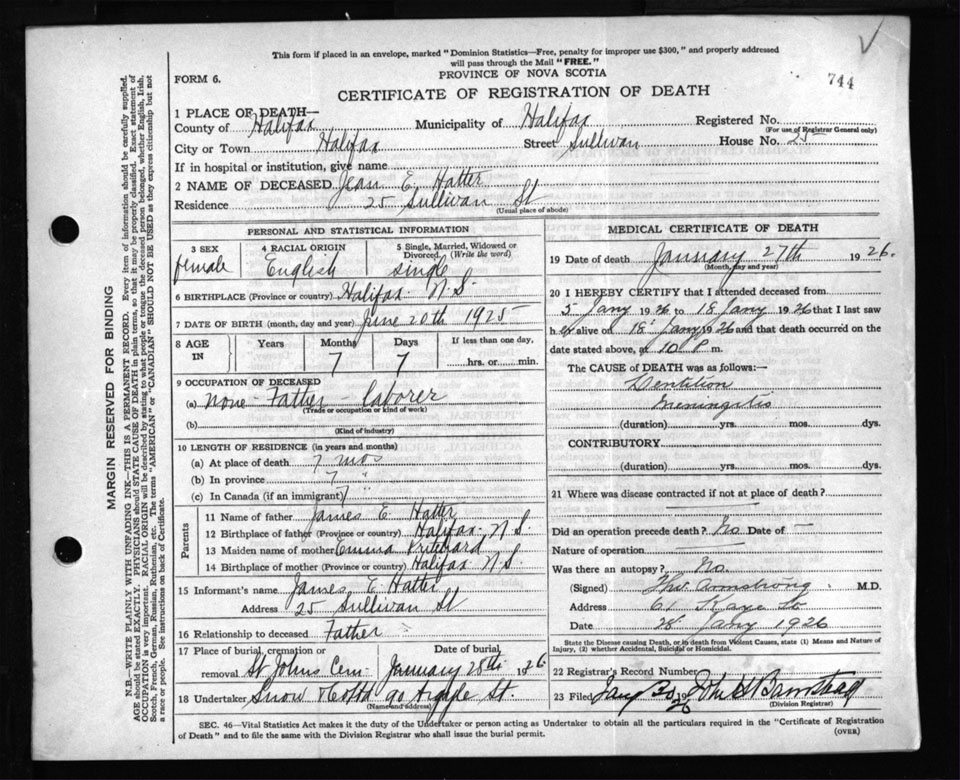 This form if placed in an envelope, marked "Dominion Statistics—Free, penalty for improper use $300," and properly addressed
will pass through the Mail "FREE."
744
FORM 6.
PROVINCE OF NOVA SCOTIA
CERTIFICATE OF REGISTRATION OF DEATH
1 PLACE OF DEATH—
County of Halifax Municipality of Halifax Registered No.
(For use of Registrar General only)
City or Town Halifax Street Sullivan House No. 25
If in hospital or institution, give name
2 NAME OF DECEASED Jean E. Hatter
Residence 25 Sullivan St
(Usual place of abode)
PERSONAL AND STATISTICAL INFORMATION
3 SEX female
4 RACIAL ORIGIN English
5 Single, Married, Widowed or Divorced. (Write the word) single
6 BIRTHPLACE (Province or country) Halifax N.S.
7 DATE OF BIRTH (month, day and year) June 20th 1925
8 AGE IN Years Months Days If less than one day,
7 7 hrs. or min.
9 OCCUPATION OF DECEASED
(a) none - Father - laborer
(Trade or occupation or kind of work)
(b)
(Kind of industry)
10 LENGTH OF RESIDENCE (in years and months)
(a) At place of death 7 mos
(b) In province 7 "
(c) In Canada (if an immigrant) 7
Parents
11 Name of father James E Hatter
12 Birthplace of father (Province or country) Halifax N.S.
13 Maiden name of mother Emma Pritchard
14 Birthplace of mother (Province or country) Halifax N.S.
15 Informant's name James E. Hatter
Address 25 Sullivan St
16 Relationship to deceased Father
17 Place of burial, cremation or removal St Johns Cem. Date of burial January 28th 1926
18 Undertaker Snow 90 Argyle St.
(Name and address)
MEDICAL CERTIFICATE OF DEATH
19 Date of death January 27th 1926.
(Month, day and year)
20 I HEREBY CERTIFY that I attended deceased from
5 Jany 1926 to 18 Jany 1926 that I last saw
her alive on 18 Jany 1926 and that death occurred on the
date stated above, at 10 P m.
The CAUSE of DEATH was as follows:—
Dentition
Meningitis
(duration) yrs. mos. dys.
CONTRIBUTORY
(duration) yrs. mos. dys.
21 Where was disease contracted if not at place of death?
Did an operation precede death? No Date of —
Nature of operation
Was there an autopsy? No.
(Signed) Armstrong M.D.
Address 61 Kaye St
Date 28 Jany 1926
State the Disease causing Death, or in death from Violent Causes, state (1) Means and Nature of
Injury, (2) whether Accidental, Suicidal or Homicidal.
22 Registrar's Record Number
23 Filed Jany 30 1926
(Division Registrar)
SEC. 46—Vital Statistics Act makes it the duty of the Undertaker or person acting as Undertaker to obtain all the particulars required in the "Certificate of Registration
of Death" and to file the same with the Division Registrar who shall issue the burial permit.
(OVER)
MARGIN RESERVED FOR BINDING
N.B.—WRITE PLAINLY WITH UNFADING INK—THIS IS A PERMANENT RECORD. Every item of information should be carefully supplied.
AGE should be stated EXACTLY. PHYSICIANS should STATE CAUSE OF DEATH in plain terms, so that it may be properly classified. Exact statement of
OCCUPATION is very important. RACIAL ORIGIN will be described by stating to what people or tongue the deceased person belonged, whether English, Irish,
Scotch, French, German, Russian, Ruthenian, etc. The terms "AMERICAN" or "CANADIAN" SHOULD NOT BE USED as they express citizenship but not
a race or people. See instructions on back of Certificate.